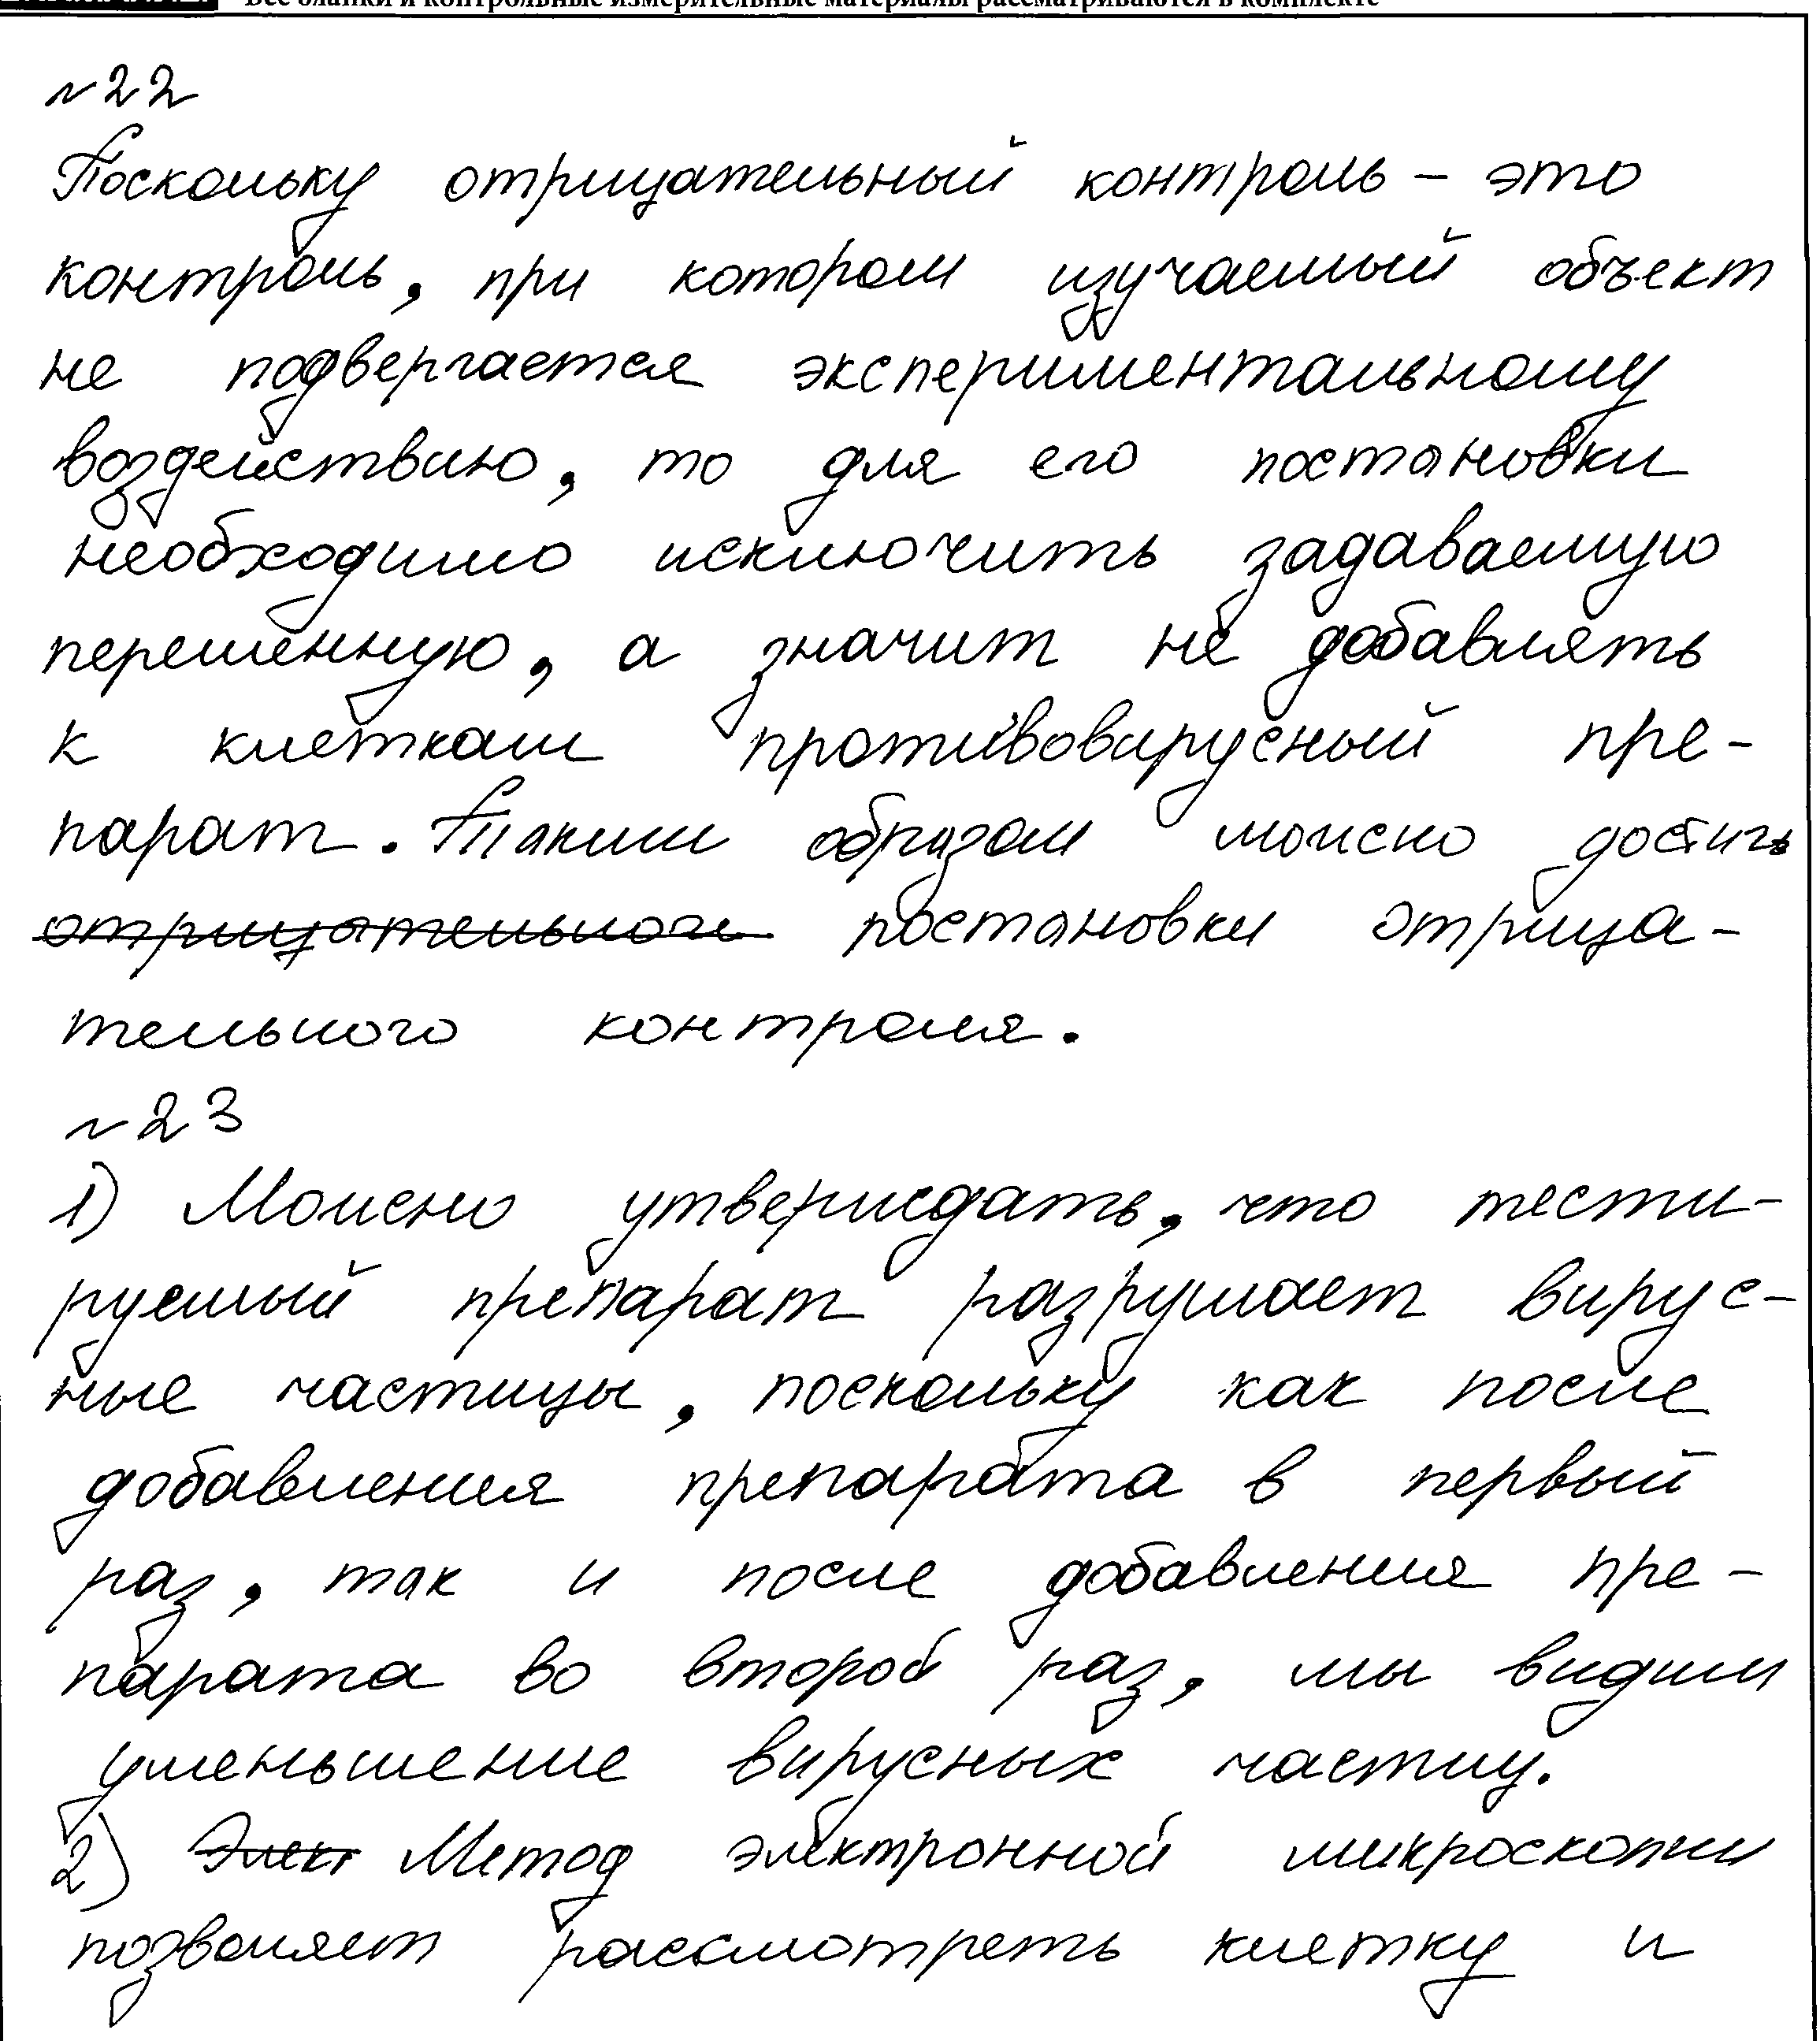 Все бланки и контрольные измерительные материалы рассматриваются в комплекте
№22
Поскольку отрицательный контроль – это
контроль, при котором изучаемый объект
не подвергается экспериментальному
воздействию, то для его постановки
необходимо исключить задаваемую
переменную, а значит не добавлять
к клеткам противовирусный пре-
парат. Таким образом можно достичь
отрицательного постановки отрица-
тельного контроля.
№23
1) Можно утверждать, что тести-
руемый препарат разрушает вирус-
ные частицы, поскольку как после
добавления препарата в первый
раз, так и после добавления пре-
парата во второй раз, мы видим
уменьшение вирусных частиц.
2) Элект Метод электронной микроскопии
позволяет рассмотреть клетку и